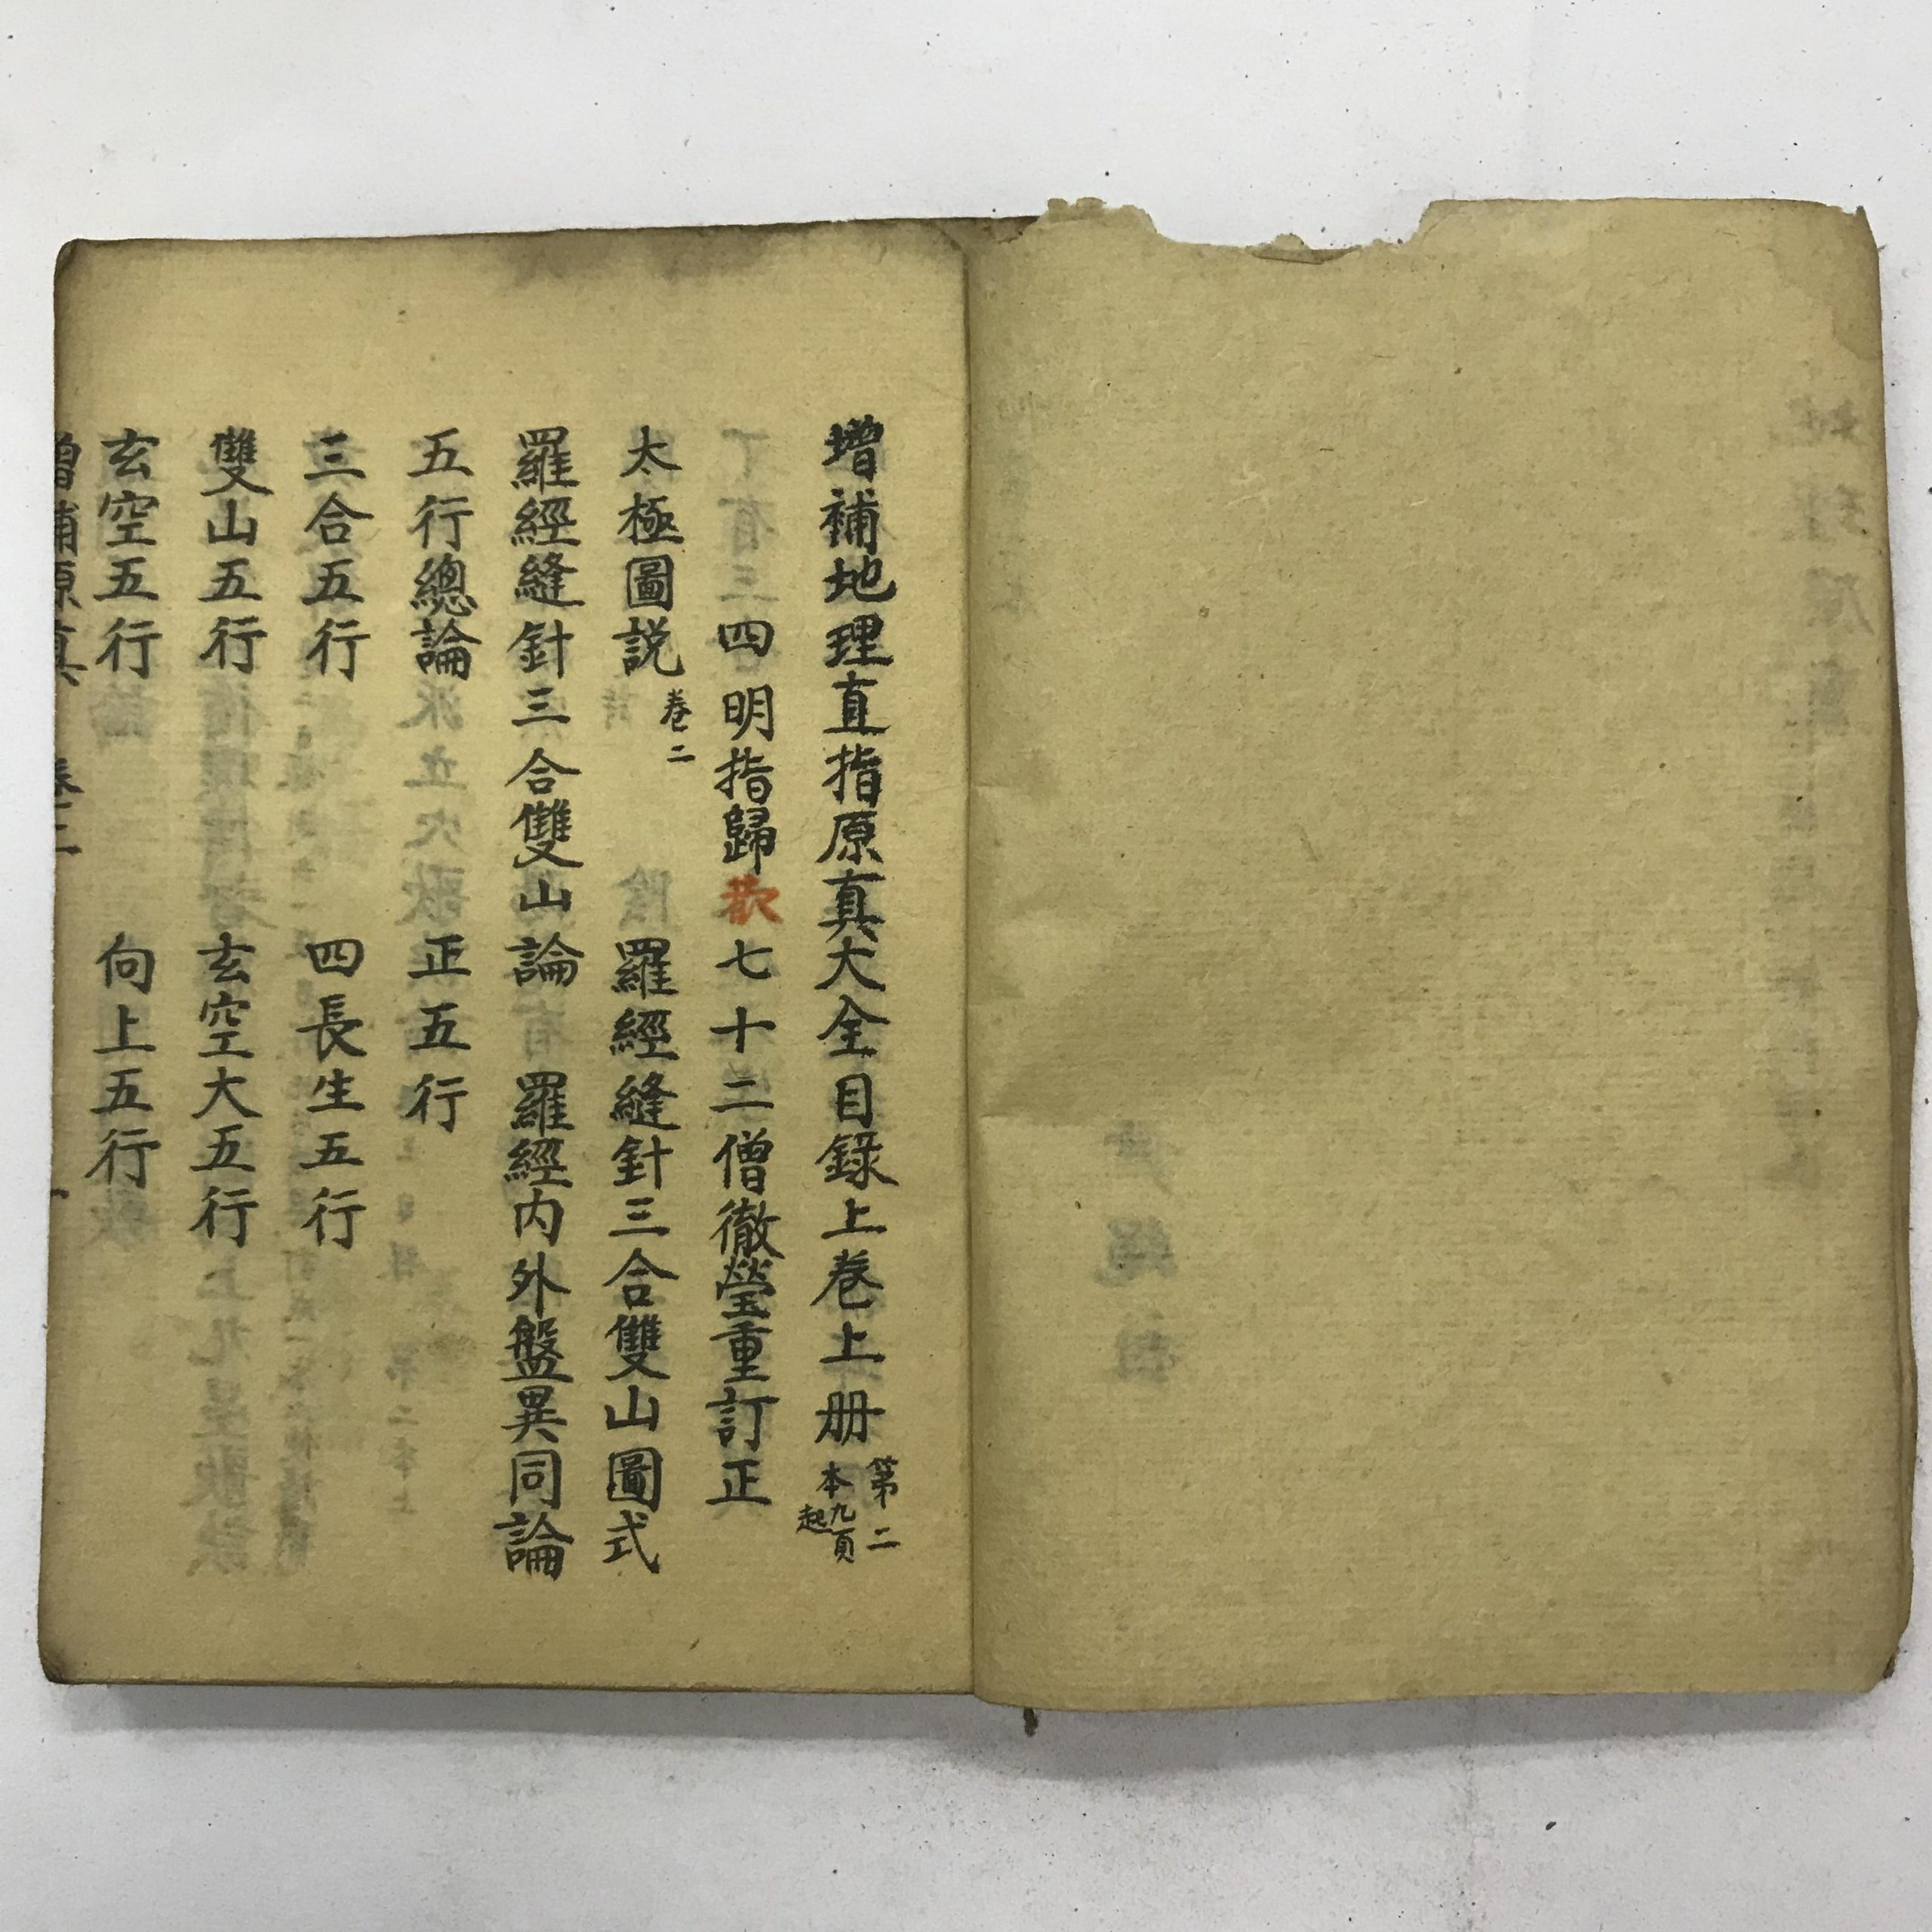 增補地理直指原真大全目錄上卷上册 第二本九頁起
四明指歸㪚七十二僧徹瑩重訂正
太極圖説 卷二 羅經縫針三合雙山圖式
羅經縫針三合雙山論 羅經内外盤異同論
五行總論 正五行
三合五行 四長生五行
雙山五行 玄空大五行
玄空五行 向上五行
增補原真 卷二